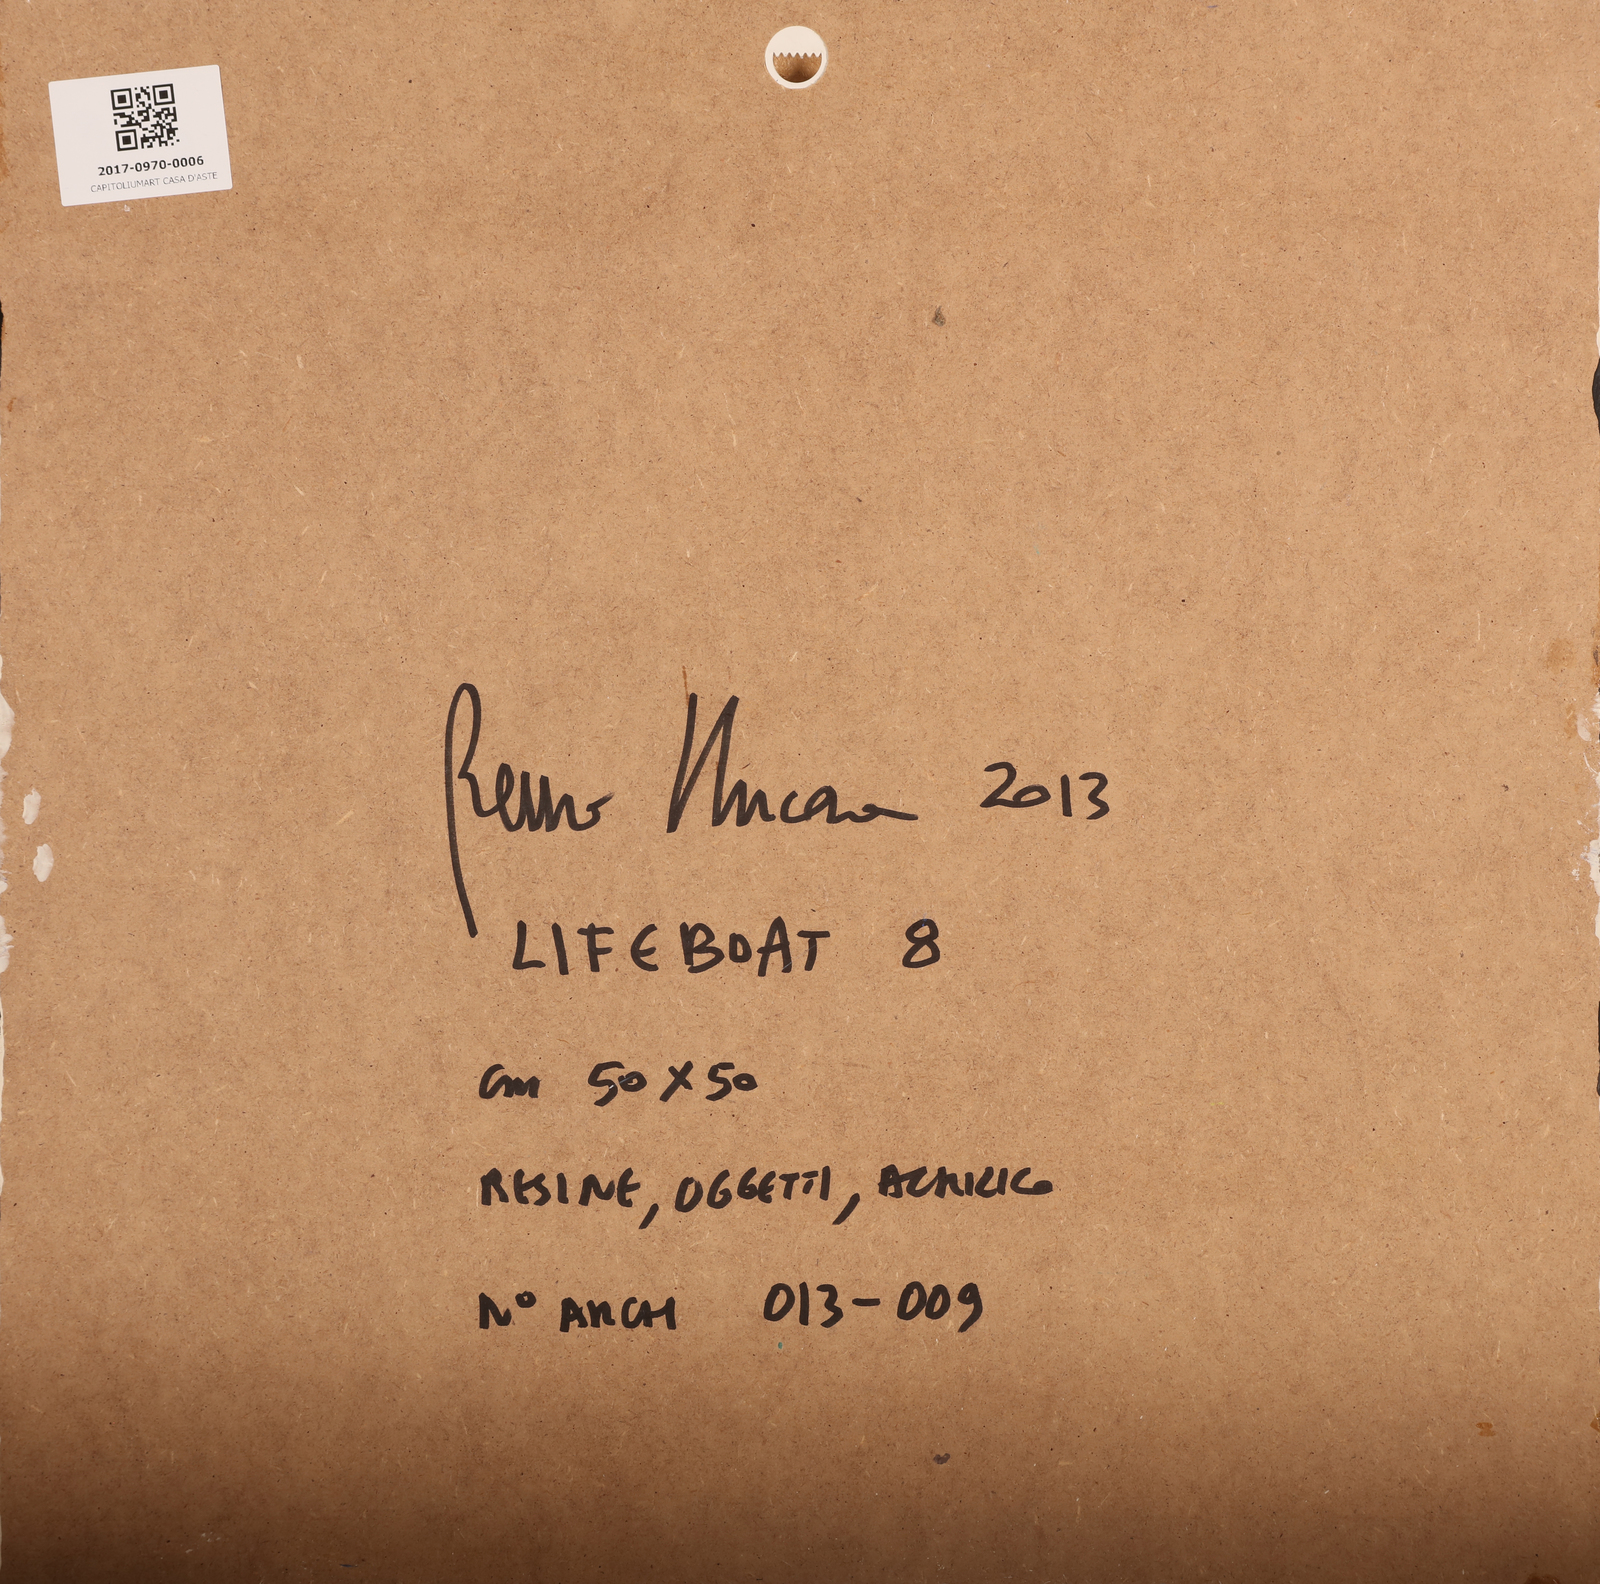 2017-0970-0006
CAPITOLIUMART CASA D'ASTE
2013
LIFEBOAT 8
cm 50 x 50
RESINE, OGGETTI, ACRILICO
N° ARCH 013-009